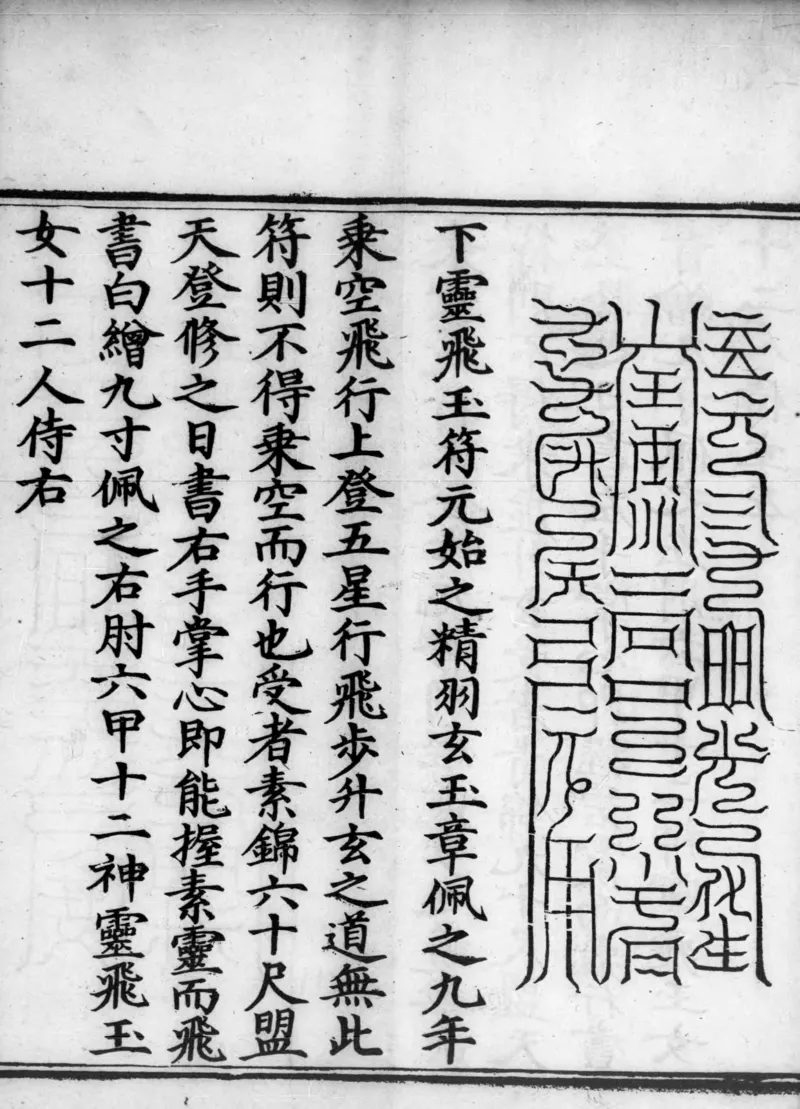 下靈飛玉符元始之精羽玄玉章佩之九年
乗空飛行上登五星行飛歩升玄之道無此
符則不得乗空而行也受者素錦六十尺盟
天登修之日書右手掌心即能握素靈而飛
書白繒九寸佩之右肘六甲十二神靈飛玉
女十二人侍右